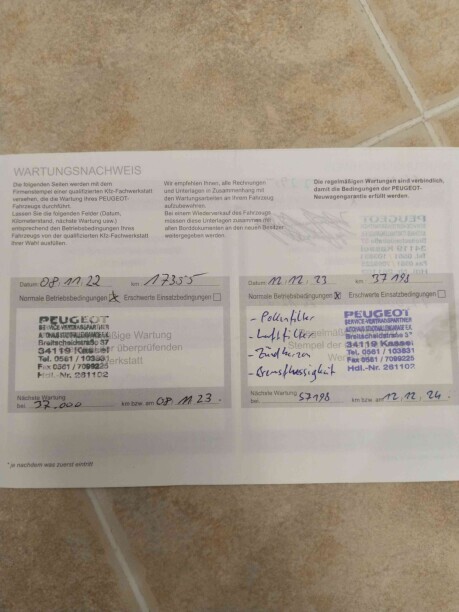 WARTUNGSNACHWEIS
Die folgenden Seiten werden mit dem
Firmenstempel einer qualifizierten Kfz-Fachwerkstatt
versehen, die die Wartung Ihres PEUGEOT-
Fahrzeugs durchführt.
Lassen Sie die folgenden Felder (Datum,
Kilometerstand, nächste Wartung usw.)
entsprechend den Betriebsbedingungen Ihres
Fahrzeugs von der qualifizierten Kfz-Fachwerkstatt
Ihrer Wahl ausfüllen.
Wir empfehlen Ihnen, alle Rechnungen
und Unterlagen in Zusammenhang mit
den Wartungsarbeiten an Ihrem Fahrzeug
aufzubewahren.
Bei einem Wiederverkauf des Fahrzeugs
müssen diese Unterlagen zusammen mit
allen Borddokumenten an den neuen Besitzer
weitergegeben werden.
Die regelmäßigen Wartungen sind verbindlich,
damit die Bedingungen der PEUGEOT-
Neuwagengarantie erfüllt werden.
Datum 08.11.22 km 17355
Normale Betriebsbedingungen Erschwerte Einsatzbedingungen
PEUGEOT
SERVICE-VERTRAGSPARTNER
Breitscheidstraße 87
34119 Kassel
Tel. 0561 / 103631
Fax 0561 / 7099225
Hdl.-Nr. 261102
Nächste Wartung
bei 37.000 km bzw. am 08.11.23.
Datum 12.12.23 km 37198
Normale Betriebsbedingungen Erschwerte Einsatzbedingungen
- Pollenfilter
- Luftfilter
- Zündkerzen
- Bremsflüssigkeit
PEUGEOT
SERVICE-VERTRAGSPARTNER
34119 Kassel
Tel. 0561 / 103631
Fax 0561 / 7099225
Hdl.-Nr. 261102
Nächste Wartung
bei 57198 km bzw. am 12.12.24.
* je nachdem was zuerst eintritt